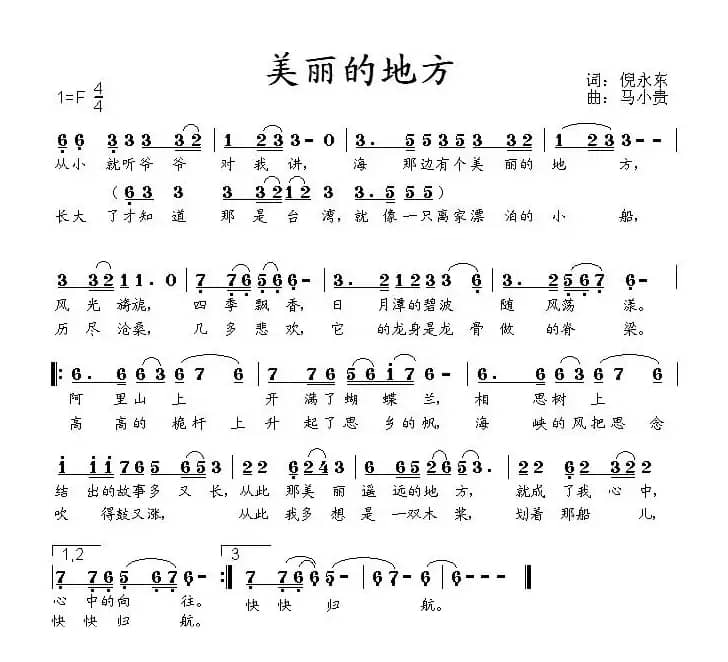 美丽的地方
1=F 4/4
词：倪永东
曲：马小贵
6 6 3 3 3 3 3 2 | 1 2 3 3 - 0 | 3 . 5 5 3 5 3 3 3 2 | 1 2 3 3 - - |
从小 就听爷 爷 对 我 讲， 海 那边有个美 丽的 地 方，
( 6 3 3 3 3 2 1 2 3 3 . 5 5 5 5 )
长大 了才知 道 那 是 台 湾，就 像 一只离家漂 泊的 小 船，
3 3 2 1 1 . 0 | 7 7 6 5 6 - | 3 . 2 1 2 3 3 6 | 3 . 2 5 6 7 6 - |
风 光 旖旎， 四 季 飘 香，日 月潭的碧波 随 风荡 漾。
历 尽 沧桑， 几 多 悲 欢，它 的龙身是龙 骨 做 的脊 梁。
6 . 6 6 3 6 7 6 | 7 7 6 5 6 i 7 | 6 . 6 6 3 6 7 6 |
阿 里 山 上 开 满了 蝴 蝶 兰，相 思树 上
高 高的 桅杆 上 升 起了 思 乡 的帆，海 峡的风把思 念
i i i 7 6 5 6 5 3 | 2 2 6 2 4 3 | 6 6 5 2 6 5 3 . | 2 2 6 2 3 2 2 |
结 出的故事多 又 长，从此 那美 丽 遥 远的地 方， 就成 了我 心 中，
吹 得鼓又涨， 从此 我多 想 是 一双木 桨， 划着 那船 儿，
1,2 3
7 7 6 5 6 7 6 - :| 7 7 6 6 5 - 7 - 6 - - - |
心 中的向 往。 快 快 归 航。
快 快 归 航。